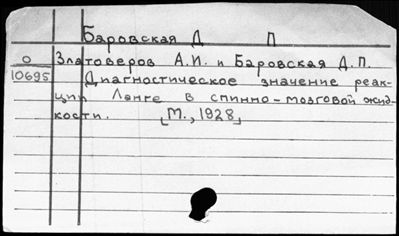 Баровская Д П
О Златоверов А.И. и Баровская Д.П.
10695 Диагностическое значение реак-
ции Ланге в спинно-мозговой жид-
кости. [М., 1928]